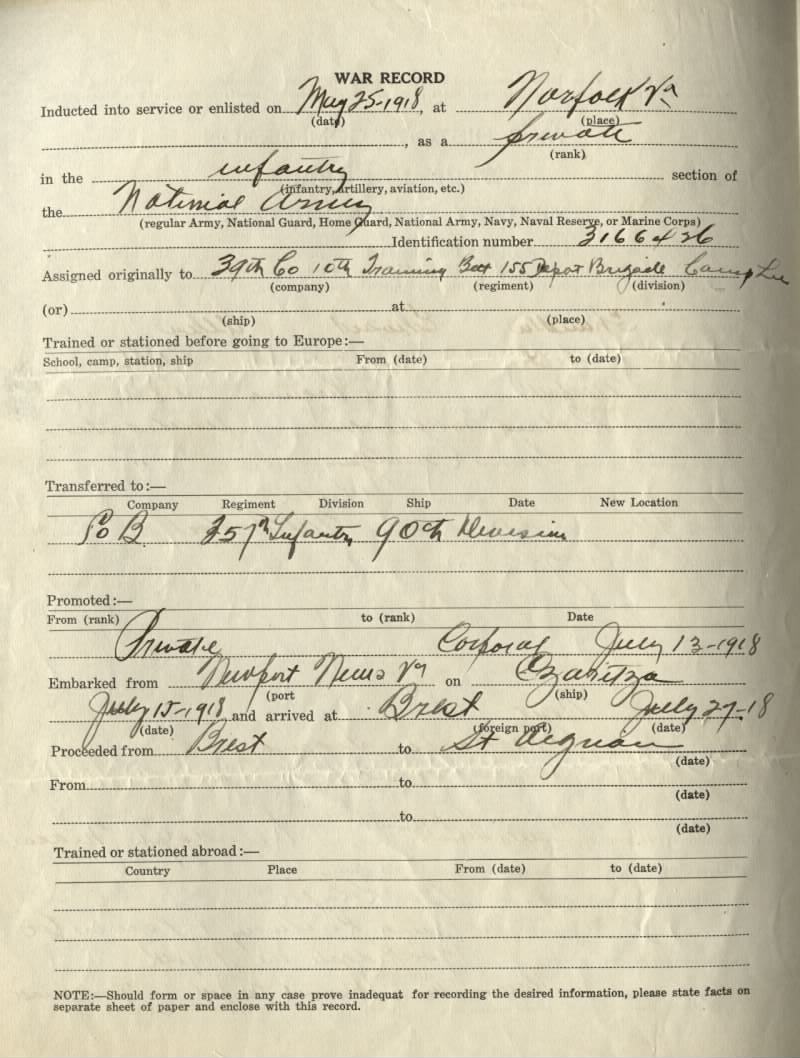 WAR RECORD
Inducted into service or enlisted on May 25-1918, at Norfolk Va
(date) (place)
, as a private
(rank)
in the infantry section of
(infantry, artillery, aviation, etc.)
the National Army
(regular Army, National Guard, Home Guard, National Army, Navy, Naval Reserve, or Marine Corps)
Identification number 3166426
Assigned originally to 39th Co 10th Training Bat 155 Depot Brigade Camp Lee
(company) (regiment) (division)
(or) at
(ship) (place)
Trained or stationed before going to Europe:—
School, camp, station, ship From (date) to (date)
Transferred to:—
Company Regiment Division Ship Date New Location
Co B 357th Infantry 90th Division
Promoted:—
From (rank) to (rank) Date
Private Corporal July 13-1918
Embarked from Newport News Va on Czaritza
(port (ship)
July 15-1918 and arrived at Brest July 27-18
(date) (foreign port) (date)
Proceeded from Brest to St Aignan
(date)
From to
(date)
to
(date)
Trained or stationed abroad:—
Country Place From (date) to (date)
NOTE:—Should form or space in any case prove inadequat for recording the desired information, please state facts on
separate sheet of paper and enclose with this record.